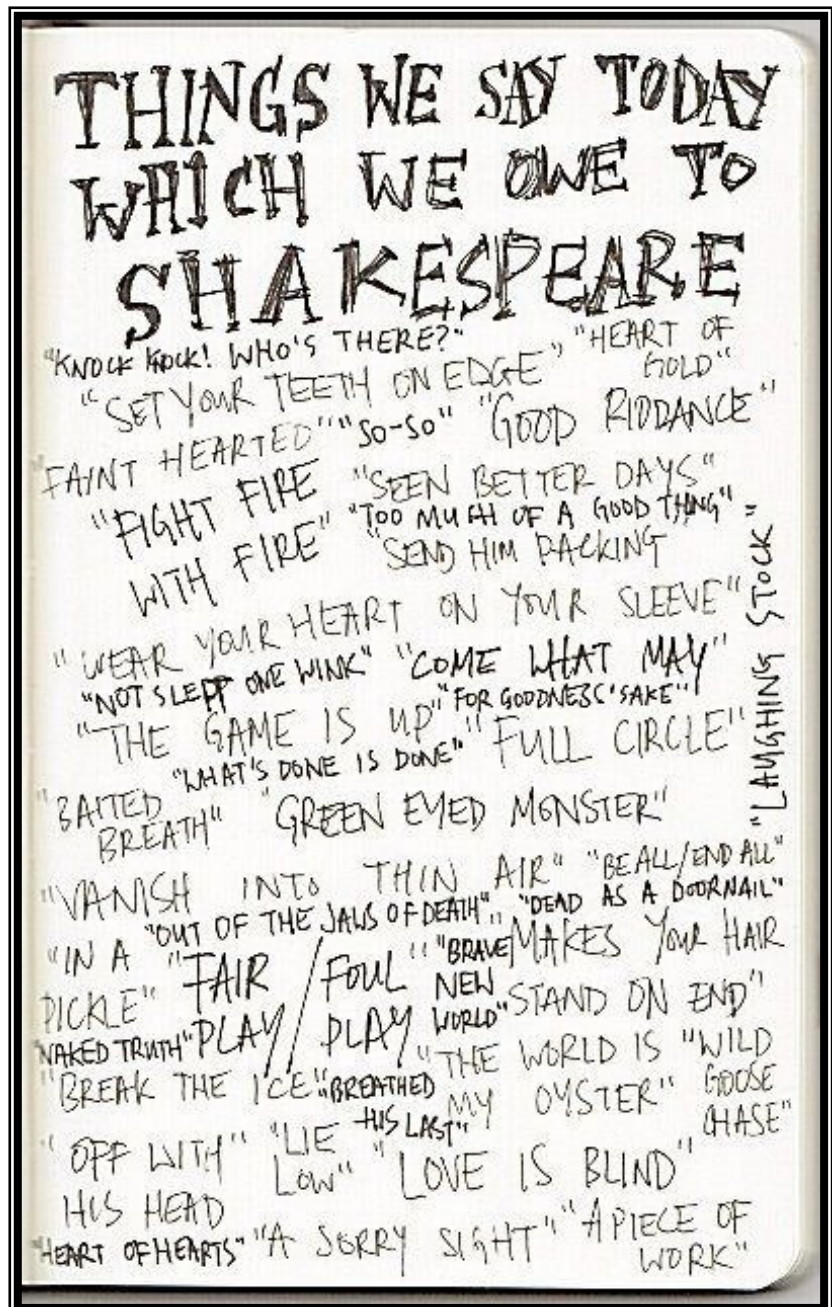 THINGS WE SAY TODAY
WHICH WE OWE TO
SHAKESPEARE
"KNOCK KNOCK! WHO'S THERE?"
"HEART OF
GOLD"
"SET YOUR TEETH ON EDGE"
"FAINT HEARTED" "SO-SO" "GOOD RIDDANCE"
"FIGHT FIRE
WITH FIRE"
"SEEN BETTER DAYS"
"TOO MUCH OF A GOOD THING"
"SEND HIM PACKING
"LAUGHING STOCK"
"WEAR YOUR HEART ON YOUR SLEEVE"
"NOT SLEPT ONE WINK" "COME WHAT MAY"
"THE GAME IS UP" "FOR GOODNESS' SAKE"
"WHAT'S DONE IS DONE" "FULL CIRCLE"
"BAITED
BREATH"
"GREEN EYED MONSTER"
"VANISH INTO THIN AIR" "BE ALL/END ALL"
"OUT OF THE JAWS OF DEATH" "DEAD AS A DOORNAIL"
"IN A
PICKLE"
"FAIR / FOUL
PLAY / PLAY
"BRAVE
NEW
WORLD"
"MAKES YOUR HAIR
STAND ON END"
"NAKED TRUTH"
"BREAK THE ICE" "BREATHED
HIS LAST"
"THE WORLD IS
MY OYSTER"
"WILD
GOOSE
CHASE"
"OFF WITH"
HIS HEAD
"LIE
LOW"
"LOVE IS BLIND"
"HEART OF HEARTS" "A SORRY SIGHT" "A PIECE OF
WORK"